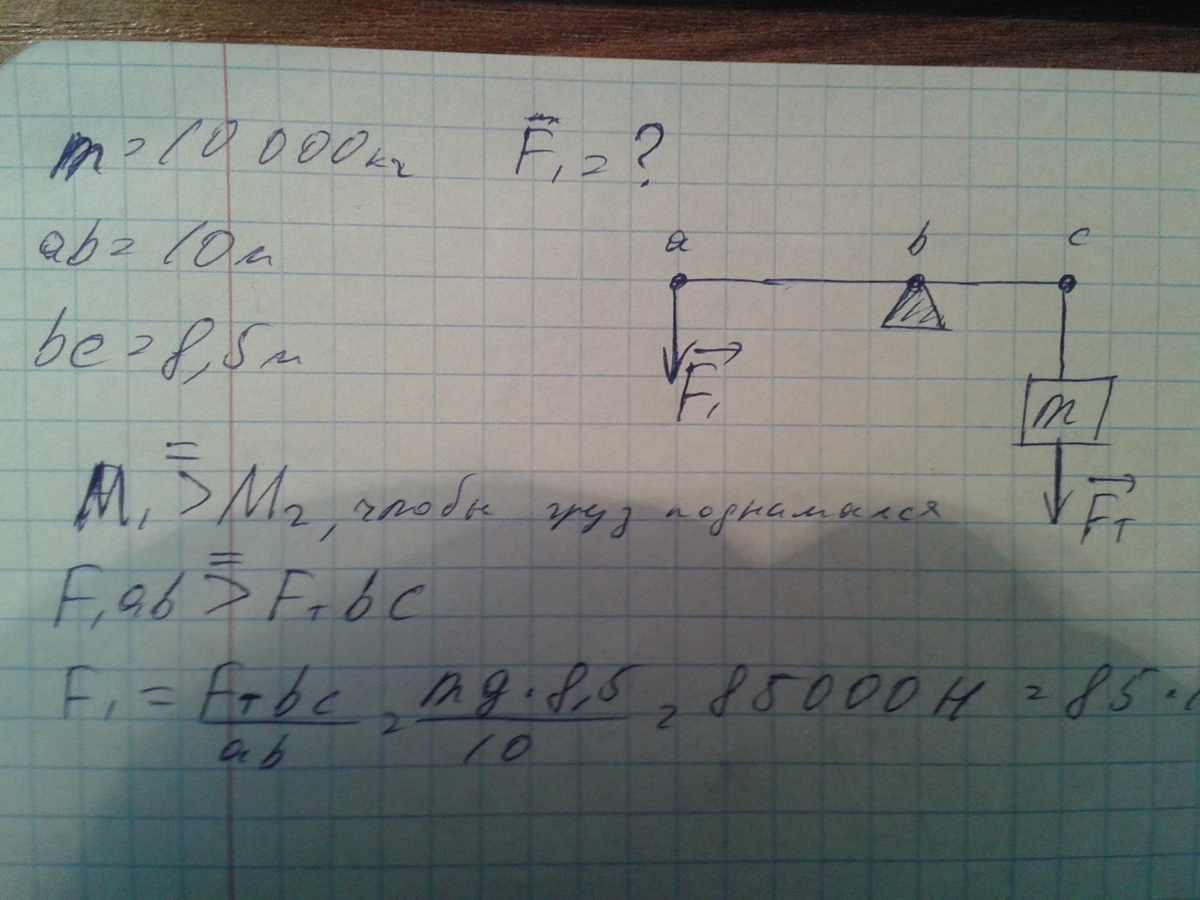 m = 10 000 кг F̅₁ = ?
ab = 10 м
bc = 8,5 м
a b c
F₁
m
Fт
M₁ ≥ M₂, чтобы груз поднимался
F₁ab ≥ Fт bc
F₁ = Fт bc / ab = mg · 8,5 / 10 = 85000 Н = 85 ·